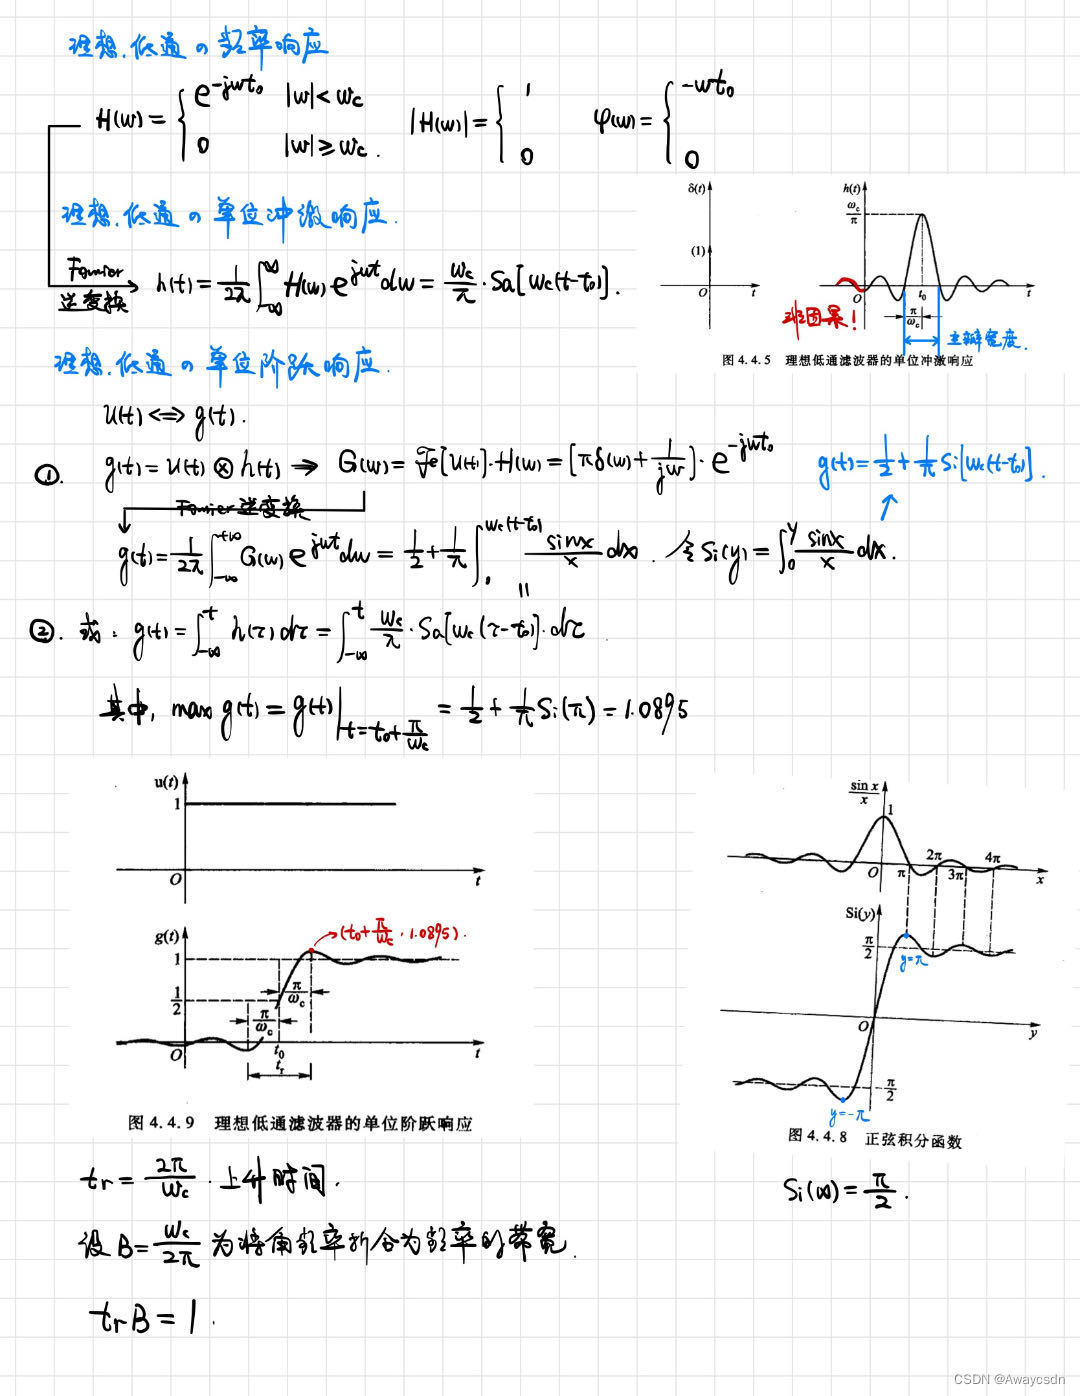 理想低通の频率响应
H(ω)= { e^{-jωt₀} |ω|<ωc  |H(ω)|= { 1  φ(ω)= { -ωt₀
0 |ω|≥ωc.  0  0
理想低通の单位冲激响应.
Fourier 逆变换 h(t)=1/2π ∫_{-∞}^{∞} H(ω)e^{jωt}dω = ωc/π · Sa[ωc(t-t₀)].
δ(t)
(1)
O t
h(t)
ωc/π
O t₀ t
π/ωc
非因果!
主瓣宽度.
图 4.4.5 理想低通滤波器的单位冲激响应
理想低通の单位阶跃响应.
u(t) <=> g(t).
①. g(t)=u(t)⊗h(t) → G(ω)=ℱ[u(t)]·H(ω)=[πδ(ω)+1/jω]·e^{-jωt₀}
g(t)=1/2+1/π Si[ωc(t-t₀)].
Fourier 逆变换
g(t)=1/2π ∫_{-∞}^{+∞} G(ω)e^{jωt}dω = 1/2+1/π ∫_0^{ωc(t-t₀)} sinx/x dx. 令 Si(y)=∫_0^y sinx/x dx.
②. 或: g(t)=∫_{-∞}^{t} h(τ)dτ = ∫_{-∞}^{t} ωc/π · Sa[ωc(τ-t₀)]·dτ
其中, max g(t)=g(t)|_{t=t₀+π/ωc} = 1/2+1/π Si(π)=1.0895
u(t)
1
O t
g(t)
(t₀+π/ωc, 1.0895).
1
1/2
π/ωc
π/ωc
O t₀ t
tr
图 4.4.9 理想低通滤波器的单位阶跃响应
sin x/x
1
O π 2π 3π 4π x
Si(y)
π/2
y=π
O y
-π/2
y=-π
图 4.4.8 正弦积分函数
tr=2π/ωc. 上升时间.
Si(∞)=π/2.
设 B=ωc/2π 为将角频率折合为频率的带宽.
trB=1.
CSDN @Awaycsdn